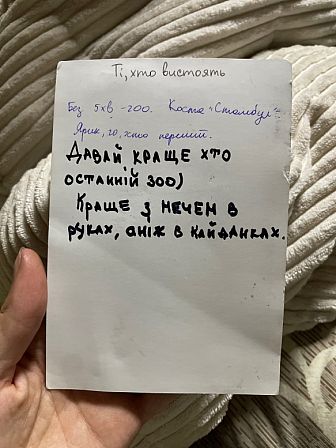 Ті, хто вистоять
Без 5хв -200. Костя "Стамбул"
Ярик, го, хто перший.
ДАВАЙ КРАЩЕ ХТО
ОСТАННІЙ 300)
КРАЩЕ З МЕЧЕМ В
РУКАХ, АНІЖ В КАЙДАНКАХ.